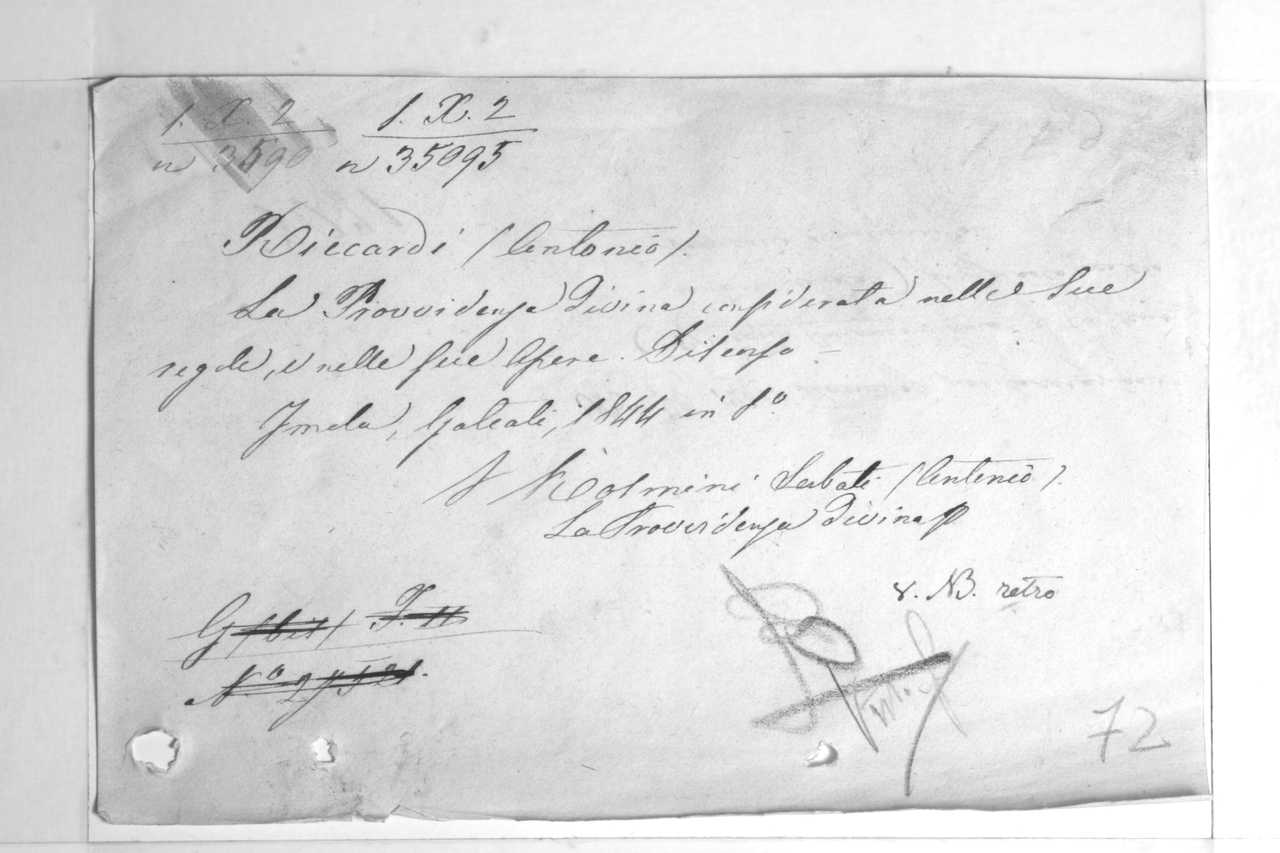 1. X. 2 1. X. 2
n 3590 n 35095
Riccardi (Antonio).
La Provvidenza Divina considerata nelle Sue
regole, e nelle sue Opere. Discorso –
Imola, Galeati, 1844 in 8.º
Rosmini Serbati (Antonio).
La Provvidenza Divina
v. NB. retro
N.º
72